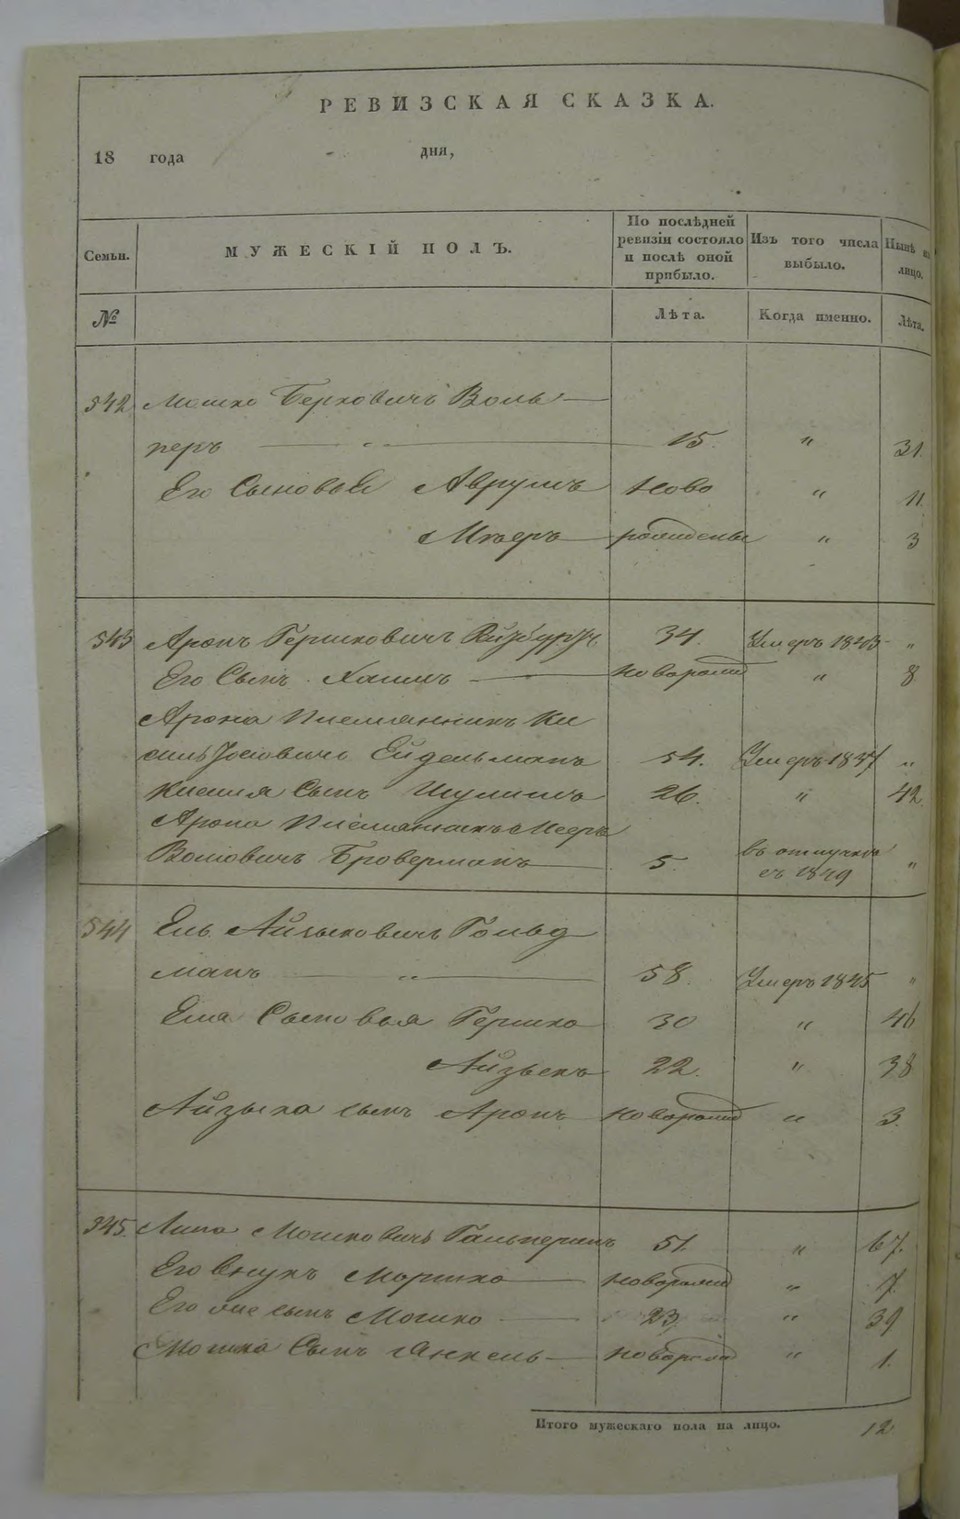 РЕВИЗСКАЯ СКАЗКА.
18 года дня,
Семьи. МУЖЕСКІЙ ПОЛЪ. По послѣдней ревизіи состояло и послѣ оной прибыло. Изъ того числа выбыло. Нынѣ на лицо.
№ Лѣта. Когда именно. Лѣта.
542 Мошко Берковичъ Воль
перъ — „ — 15. „ 31.
Его Сыновья Аврумъ Ново „ 11
Мееръ рожденые „ 3
543 Аронъ Гершковичъ 34. Умеръ 1843 „
Его Сынъ Хаимъ новорожд „ 8
Арона Племянникъ Ки
силь Іосіовичъ Ейдельманъ 54. Умеръ 1837 „
Кисиля Сынъ Шулимъ 26. „ 42
Арона Племянникъ Мееръ
Волковичъ Броверманъ 5. въ отлучкѣ съ 1849 „
544 Ель Айзыковичъ Гольд
манъ — „ — 58. Умеръ 1845 „
Еля Сыновья Гершко 30 „ 46
Айзыкъ 22. „ 38
Айзыка сынъ Аронъ новорожд „ 3.
545. Липа Мошковичъ Гальперинъ 51 „ 67.
Его внукъ Моршко новорожд „ 7.
Его же сынъ Мошко 23, „ 39
Мошка Сынъ Янкель новорожд „ 1.
Итого мужескаго пола на лицо. 12